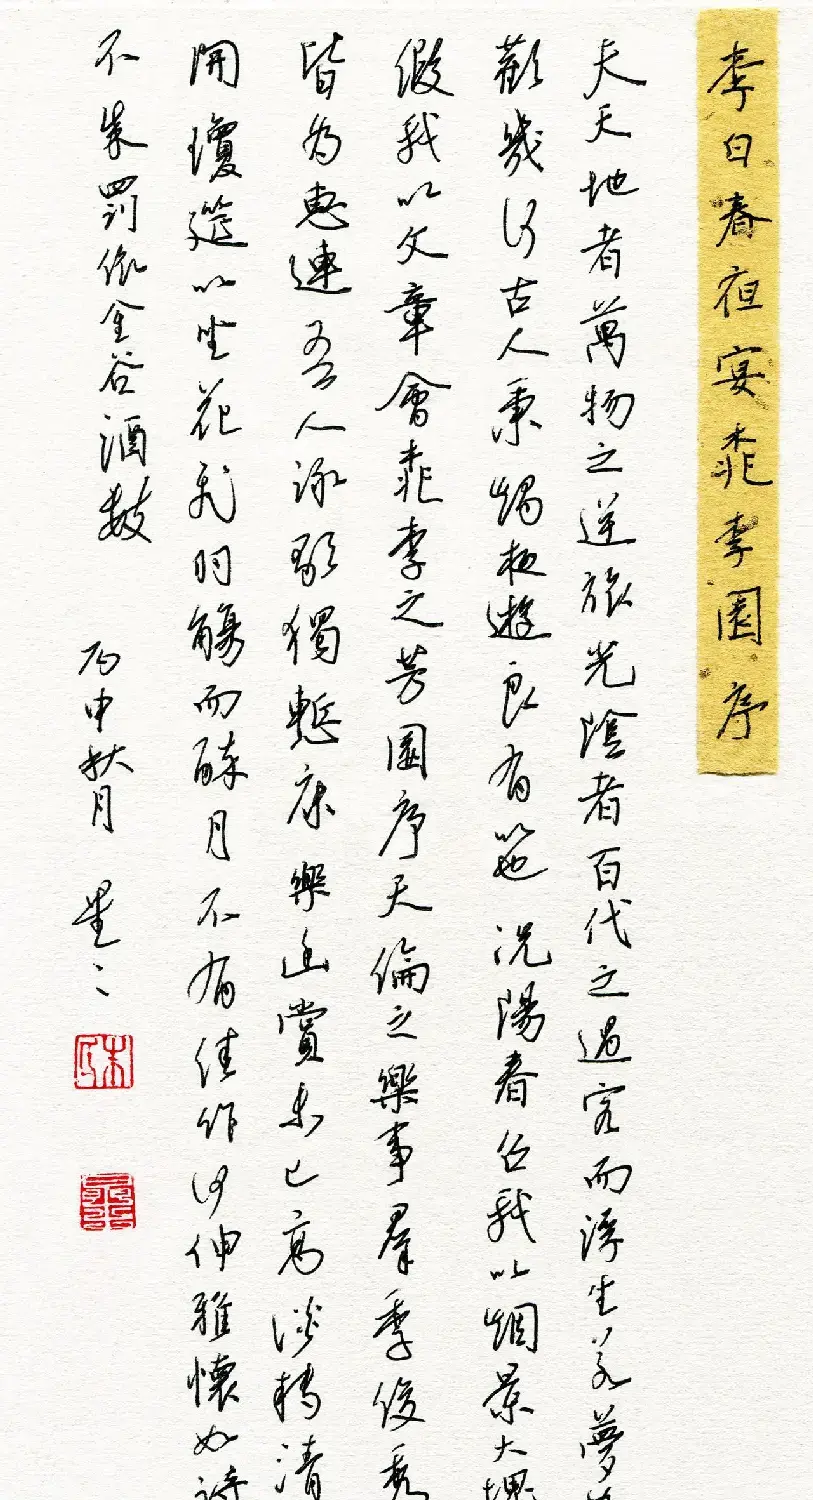 李白春夜宴桃李園序
夫天地者萬物之逆旅光陰者百代之過客而浮生若夢
歡幾何古人秉燭夜遊良有以也況陽春召我以烟景大塊
假我以文章會桃李之芳園序天倫之樂事羣季俊秀
皆為惠連吾人詠歌獨慙康樂幽賞未已高談轉清
開瓊筵以坐花飛羽觴而醉月不有佳作何伸雅懷如詩
不成罰依金谷酒數
丙申秋月